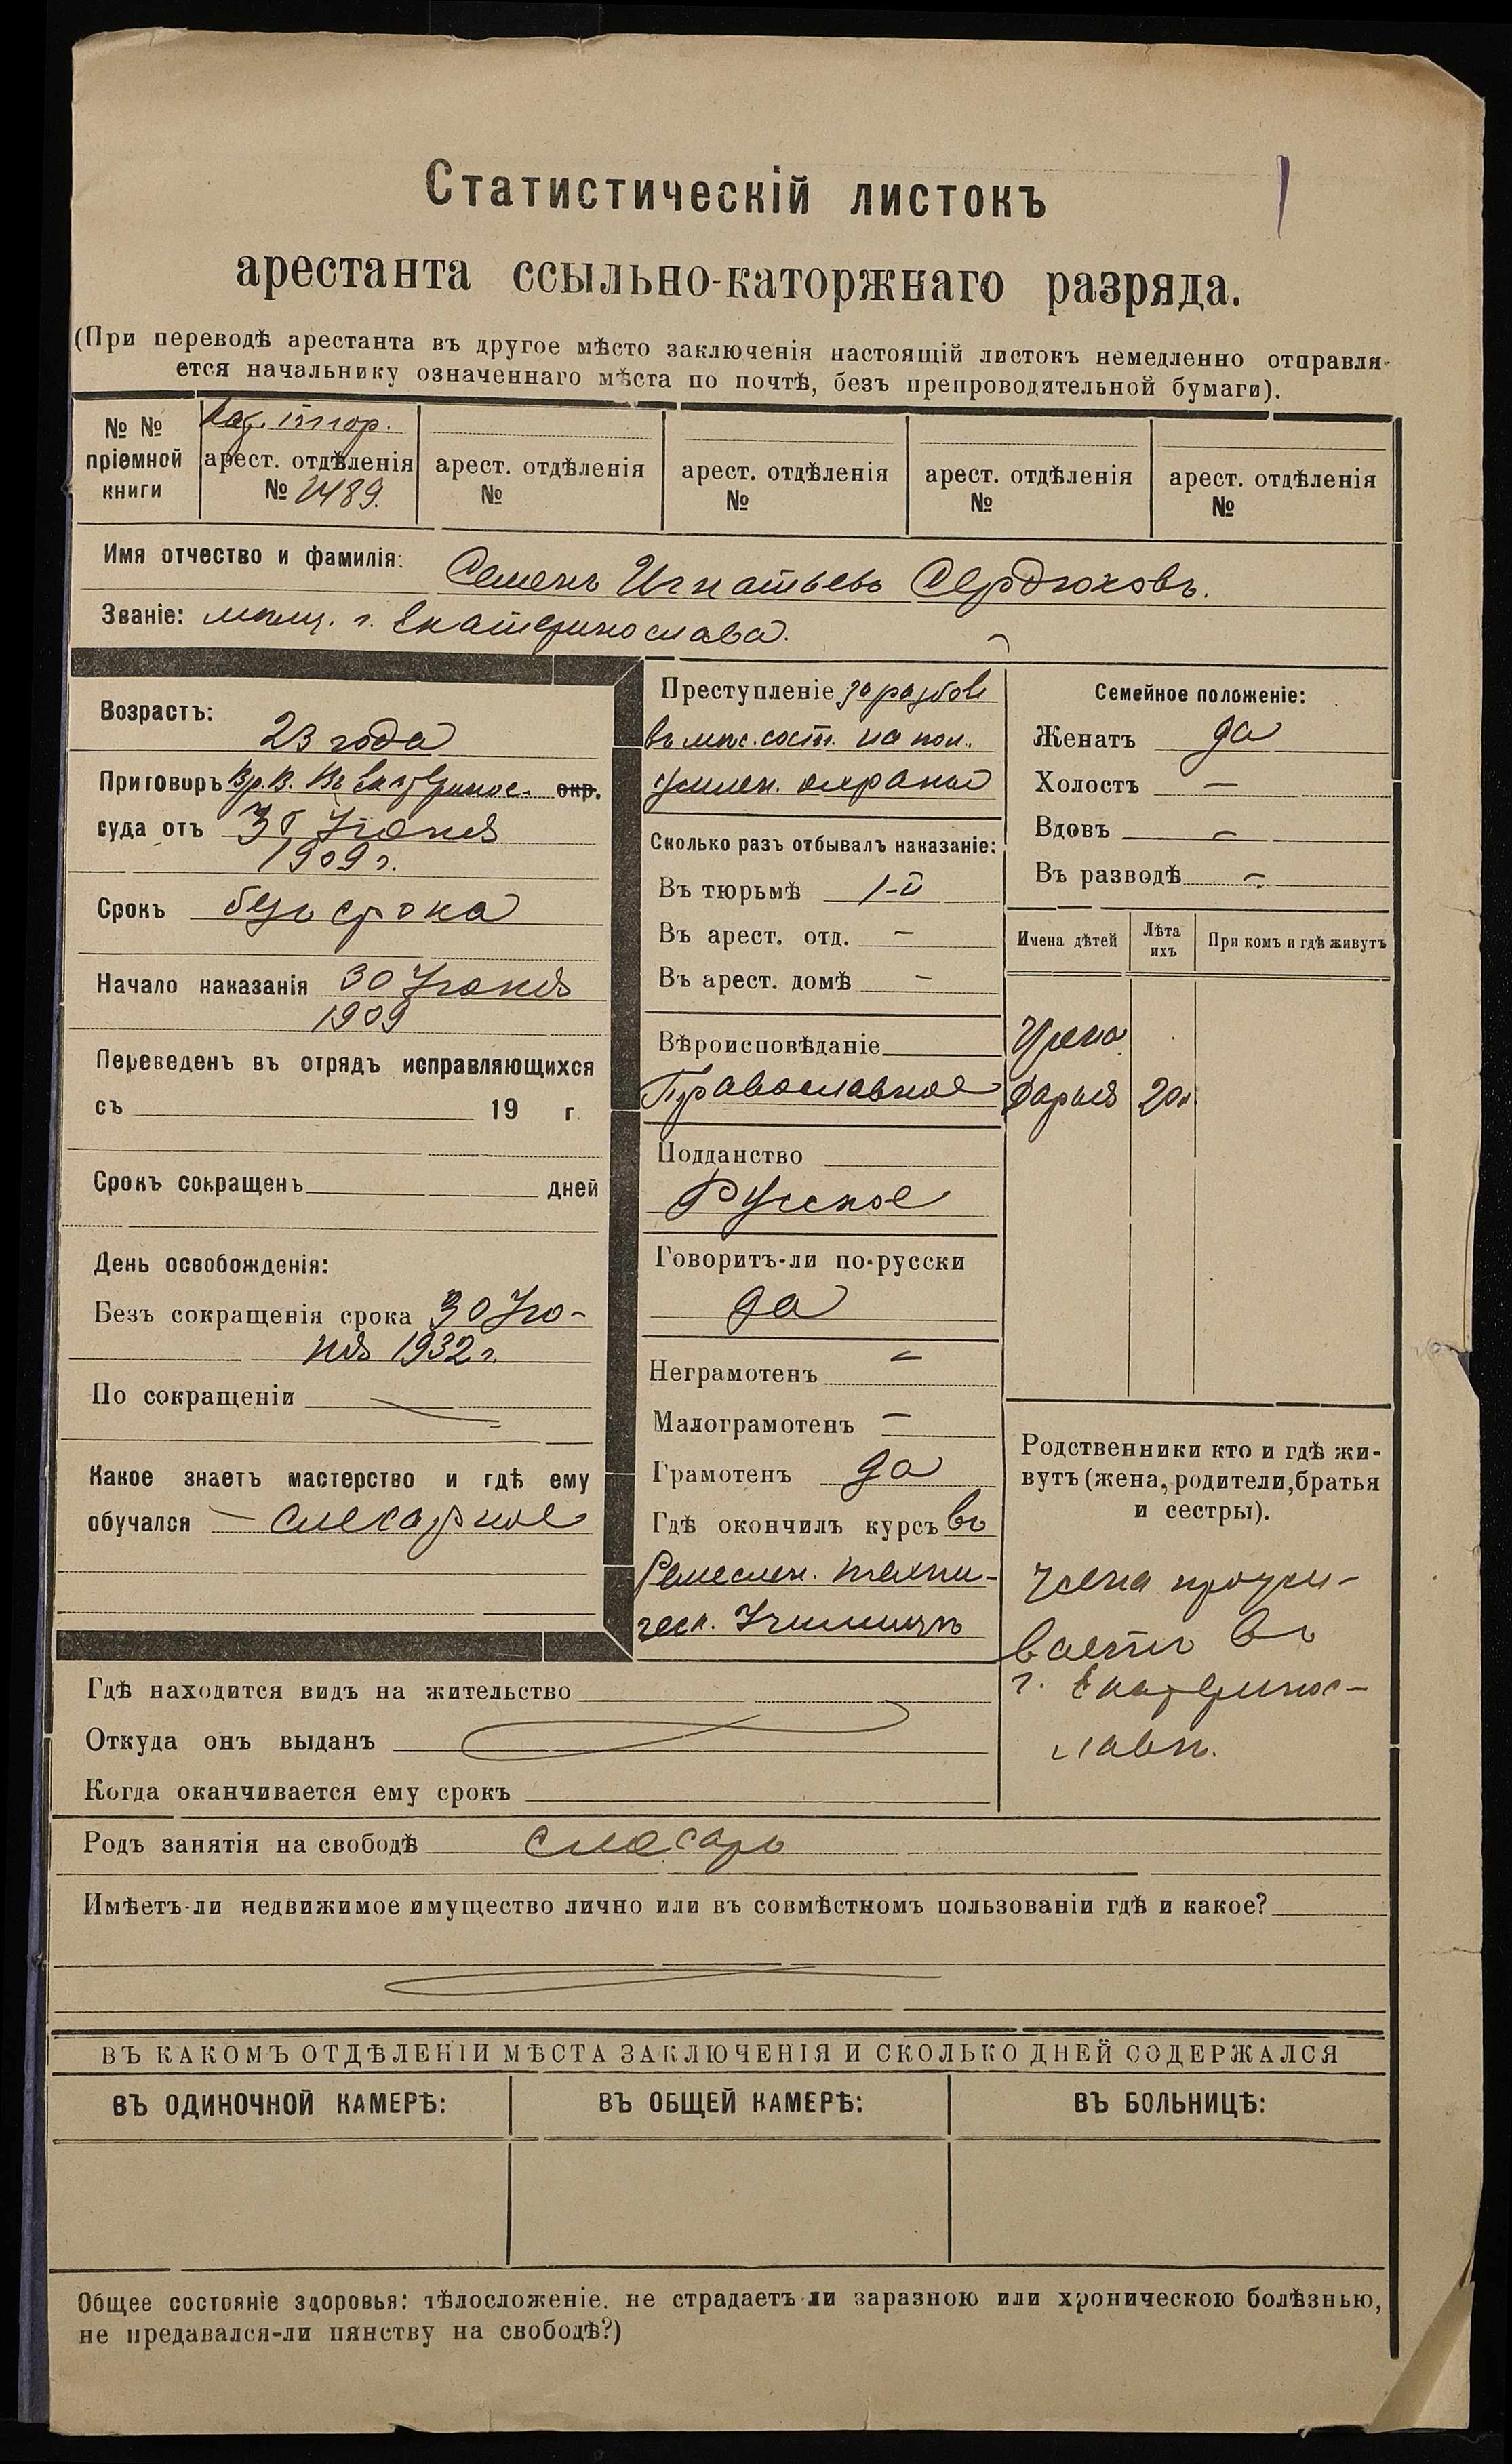 Статистическій листокъ
арестанта ссыльно-каторжнаго разряда.
(При переводѣ арестанта въ другое мѣсто заключенія настоящій листокъ немедленно отправля-
ется начальнику означеннаго мѣста по почтѣ, безъ препроводительной бумаги).
№ № пріемной книги
арест. отдѣленія № 2489.
арест. отдѣленія №
арест. отдѣленія №
арест. отдѣленія №
арест. отдѣленія №
Имя отчество и фамилія: Семенъ Игнатьевъ Сердюковъ.
Званіе: мѣщ. г. Екатеринослава.
Возрастъ:
23 года
Приговоръ Вр. В. Въ Екатеринос. окр.
суда отъ 30 Іюня
1909 г.
Срокъ безъ срока
Начало наказанія 30 Іюня
1909
Переведенъ въ отрядъ исправляющихся
съ 19 г
Срокъ сокращенъ дней
День освобожденія:
Безъ сокращенія срока 30 Ію-
ня 1932 г.
По сокращеніи —
Какое знаетъ мастерство и гдѣ ему
обучался — слесарное
Преступленіе за разбой
въ мѣс. сост. на пол.
усилен. охраны
Сколько разъ отбывалъ наказаніе:
Въ тюрьмѣ 1-й
Въ арест. отд. —
Въ арест. домѣ —
Вѣроисповѣданіе
Православное
Подданство
Русское
Говоритъ-ли по-русски
да
Неграмотенъ —
Малограмотенъ —
Грамотенъ да
Гдѣ окончилъ курсъ въ
Ремеслен. техни-
ческ. Училищѣ
Семейное положеніе:
Женатъ да
Холостъ —
Вдовъ —
Въ разводѣ —
Имена дѣтей
Лѣта ихъ
При комъ и гдѣ живутъ
Жена
Дарья 20 л.
Родственники кто и гдѣ жи-
вутъ (жена, родители, братья
и сестры).
Жена прожи-
ваетъ въ
г. Екатеринос-
лавѣ.
Гдѣ находится видъ на жительство
Откуда онъ выданъ
Когда оканчивается ему срокъ
Родъ занятія на свободѣ слесарь
Имѣетъ-ли недвижимое имущество лично или въ совмѣстномъ пользованіи гдѣ и какое?
ВЪ КАКОМЪ ОТДѢЛЕНІИ МѢСТА ЗАКЛЮЧЕНІЯ И СКОЛЬКО ДНЕЙ СОДЕРЖАЛСЯ
ВЪ ОДИНОЧНОЙ КАМЕРѢ:
ВЪ ОБЩЕЙ КАМЕРѢ:
ВЪ БОЛЬНИЦѢ:
Общее состояніе здоровья: тѣлосложеніе. не страдаетъ-ли заразною или хроническою болѣзнью,
не предавался-ли пянству на свободѣ?)